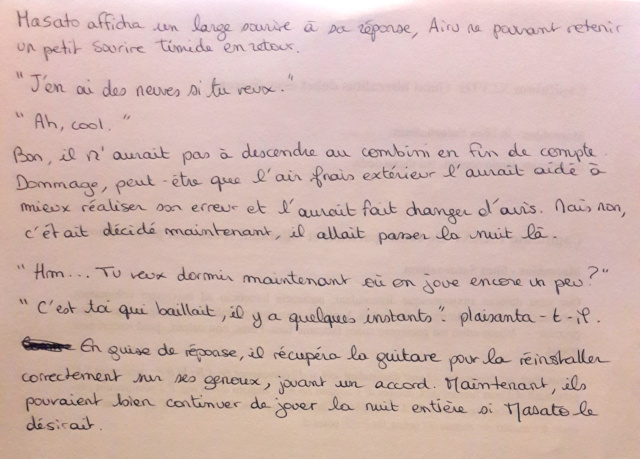 Masato afficha un large sourire à sa réponse, Airu ne pouvant retenir
un petit sourire timide en retour.
"J'en ai des neuves si tu veux."
"Ah, cool."
Bon, il n'aurait pas à descendre au combini en fin de compte.
Dommage, peut-être que l'air frais extérieur l'aurait aidé à
mieux réaliser son erreur et l'aurait fait changer d'avis. Mais non,
c'était décidé maintenant, il allait passer la nuit là.
"Hm... Tu veux dormir maintenant où on joue encore un peu?"
"C'est toi qui baillait, il y a quelques instants". plaisanta-t-il.
En guise de réponse, il récupéra la guitare pour la réinstaller
correctement sur ses genoux, jouant un accord. Maintenant, ils
pouvaient bien continuer de jouer la nuit entière si Masato le
désirait.